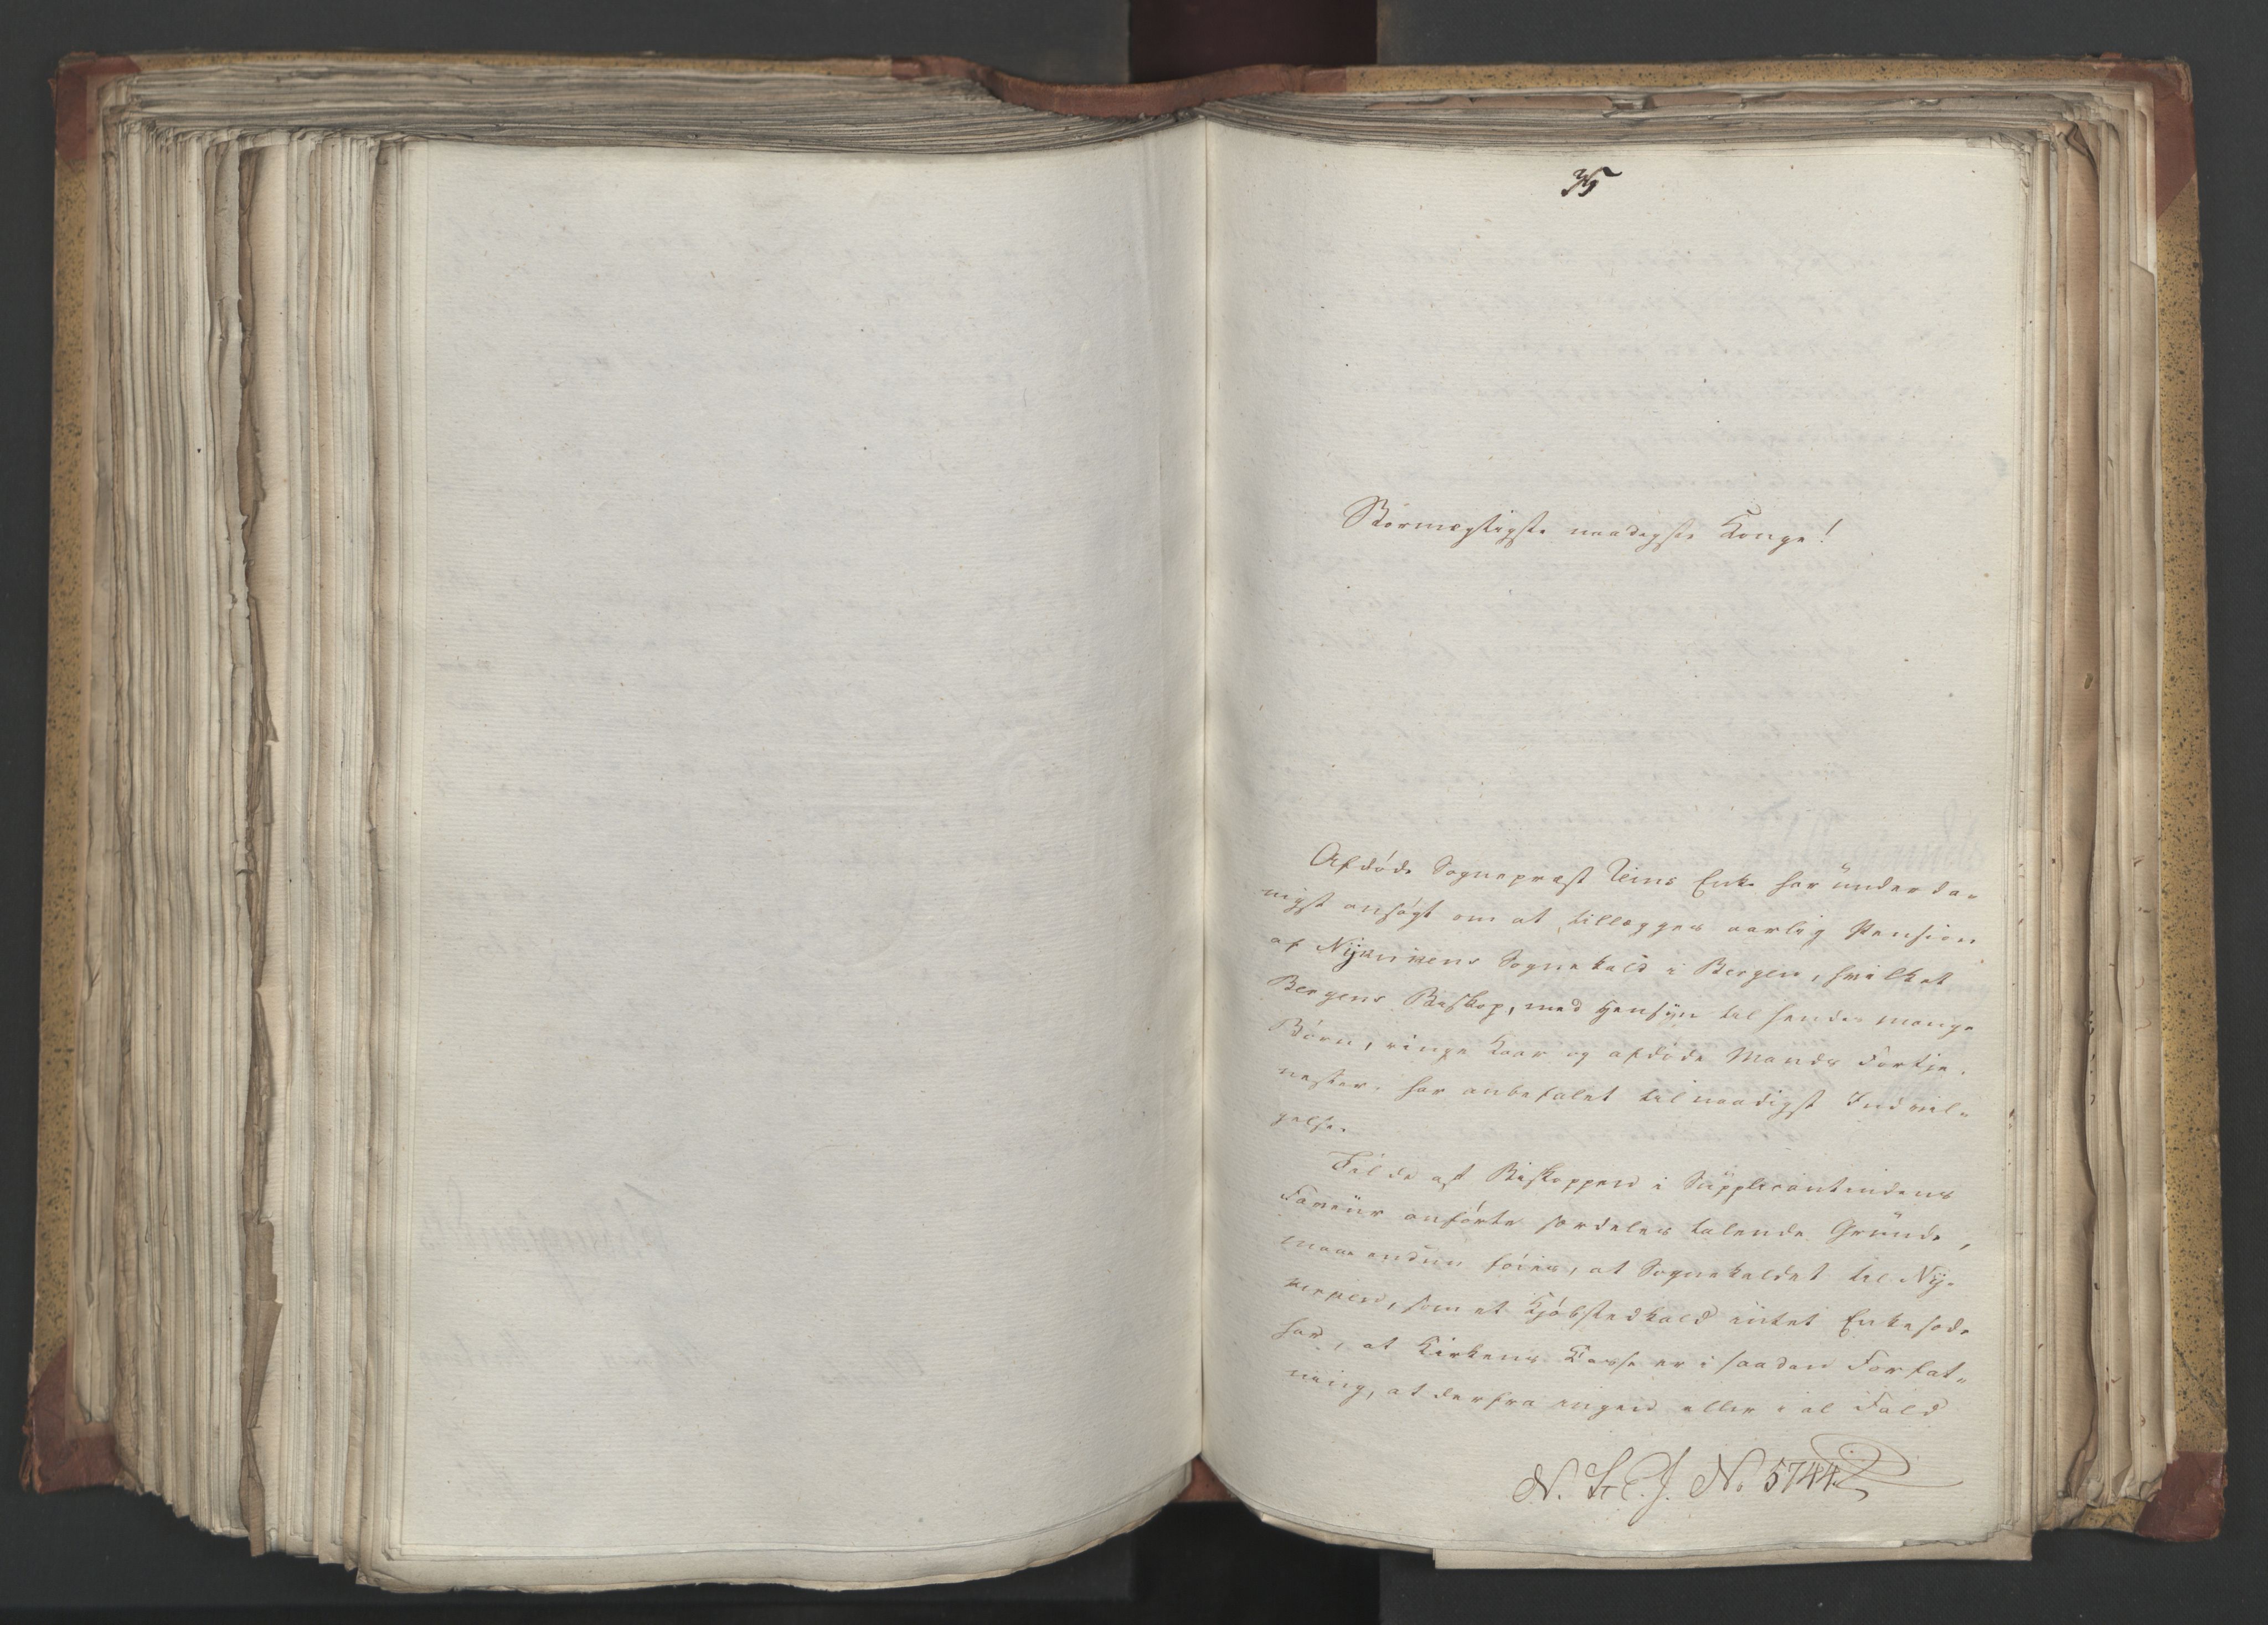 35
Stormægtigste naadigste Konge!
Afdøde Sognepræst Reins Enke har underda-
nigst ansøgt om at tillægges aarlig Pension
af Nykirkens Sognekald i Bergen, hvilket
Bergens Biskop, med Hensyn til hendes mange
Børn, ringe Kaar og afdøde Mands Fortje-
nester har anbefalet til naadigst Indvil-
gelse.
Til de af Biskoppen i Supplicantindens
Faveur anførte særdeles talende Grunde,
maae endnu føies, at Sognekaldet til Ny-
kirken, som et Kjøbstedkald intet Enkesæde
har, at Kirkens Casse er i saadan Forfat-
ning, at derfra ingen eller i al Fald
N. 5744